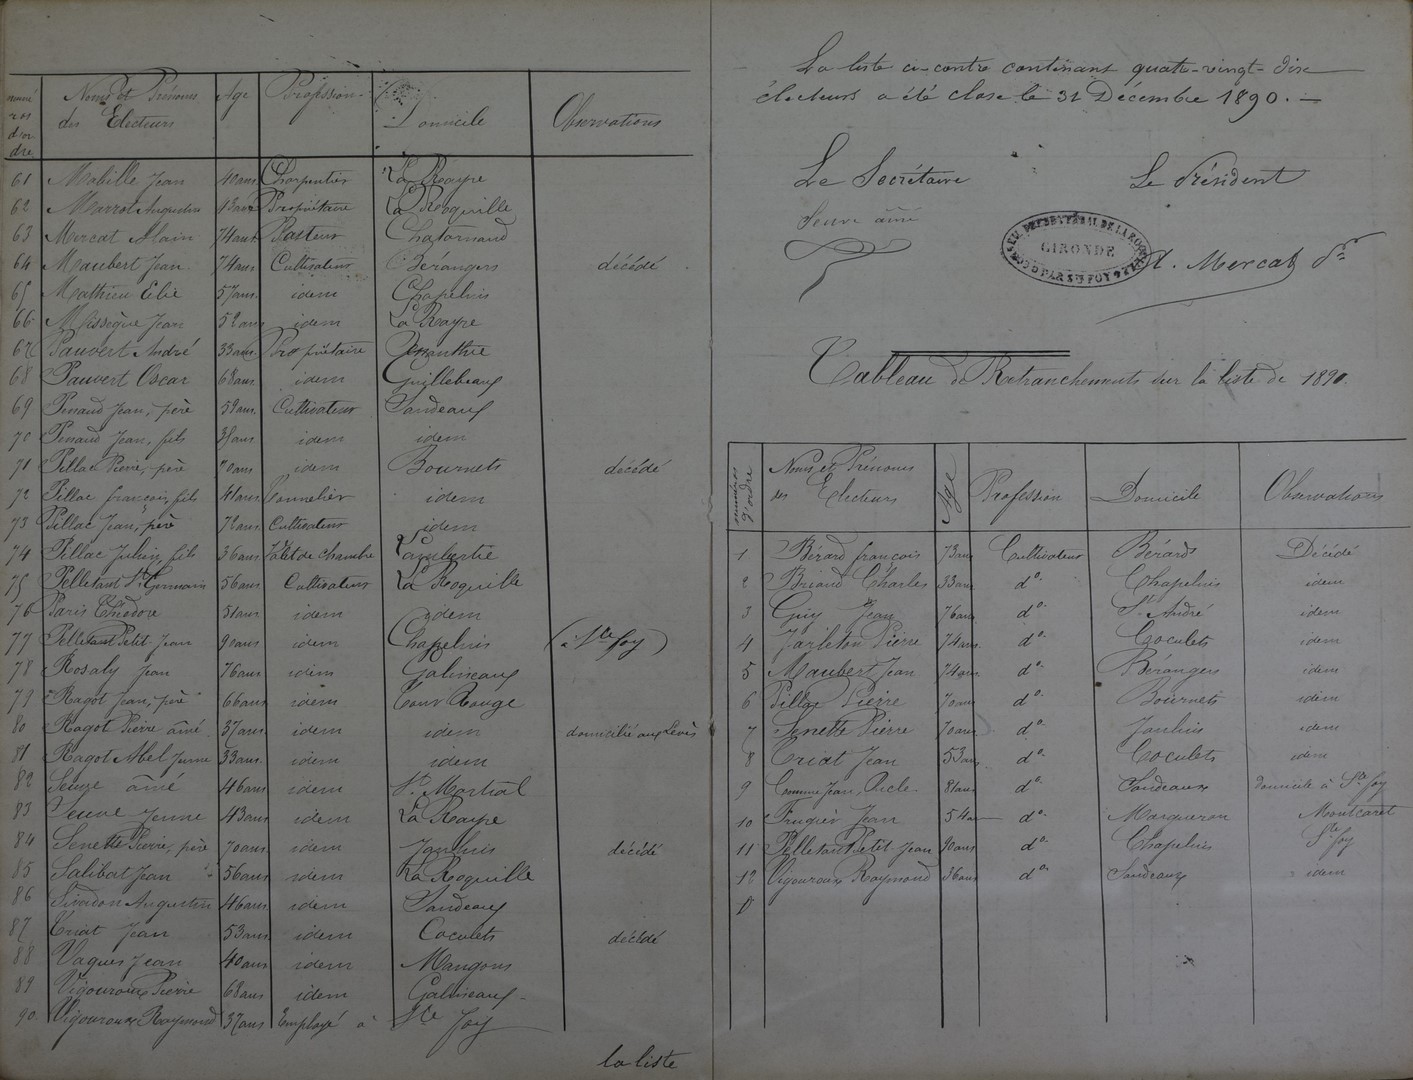 numéros d'ordre Noms et Prénoms des Electeurs Age Profession Domicile Observations
61 Mabille Jean 40 ans Charpentier La Rayre
62 Marrot Augustin 43 ans Propriétaire La Roquille
63 Mercat Alain 74 ans Pasteur
64 Maubert Jean 74 ans Cultivateur Bérangers décédé
65 Mathieu Elie 57 ans idem Chapelnis
66 Jean 52 ans idem La Rayre
67 Pauvert André 33 ans Propriétaire
68 Pauvert Oscar 68 ans idem Guillebeaux
69 Penaud Jean, père 59 ans Cultivateur Sandeaux
70 Penaud Jean, fils idem idem
71 Pillac Pierre, père 70 ans idem Bournets décédé
72 Pillac françois, fils 41 ans Tonnelier idem
73 Pillac Jean, père 72 ans Cultivateur idem
74 Pillac Julien, fils 36 ans Valet de chambre
75 Pelletant St Germain 56 ans Cultivateur La Roquille
76 Paris Théodore 51 ans idem idem
77 Pelletant Petit Jean 90 ans idem Chapelnis (à Ste foy)
78 Rosaly Jean 76 ans idem Galineaux
79 Ragot Jean, père 66 ans idem Tour Rouge
80 Ragot Pierre aîné 37 ans idem idem domicilié aux Lèves
81 Ragot Abel Jeune 33 ans idem idem
82 aîné 46 ans idem St Martial
83 Seuve Jeune 43 ans idem La Rayre
84 Senette Pierre, père 70 ans idem Jauhuis décédé
85 Salibat Jean 56 ans idem La Roquille
86 Sivadon Augustin 46 ans idem Sandeaux
87 Triat Jean 53 ans idem Coculets décédé
88 Vagues Jean 40 ans idem Mangons
89 Vigouroux Pierre 68 ans idem Galineaux
90 Vigouroux Raymond 37 ans Employé à Ste Foy
la liste
La liste ci-contre contenant quatre-vingt-dix
électeurs a été close le 31 Décembre 1890. —
Le Secrétaire Le Président
Seuve aîné
GIRONDE
A. Mercat
Tableau de Retranchements sur la liste de 1890.
numéros d'ordre Noms et Prénoms des Electeurs Age Profession Domicile Observations
1 Bérard françois 73 ans Cultivateur Bérards Décédé
2 Briand Charles 33 ans do. Chapelnis idem
3 Guiy Jean 76 ans do. St André idem
4 Jarleton Pierre 74 ans do. Coculets idem
5 Maubert Jean 74 ans do. Bérangers idem
6 Pillac Pierre 70 ans do. Bournets idem
7 Senette Pierre 70 ans do. Jauhuis idem
8 Triat Jean 53 ans do. Coculets idem
9 Jean, 81 ans do. Sandeaux domicile à Ste foy
10 Frugier Jean 54 ans do. Margueron Montcaret
11 Pelletant Petit Jean 90 ans do. Chapelnis Ste foy
12 Vigouroux Raymond 36 ans do. Sandeaux idem